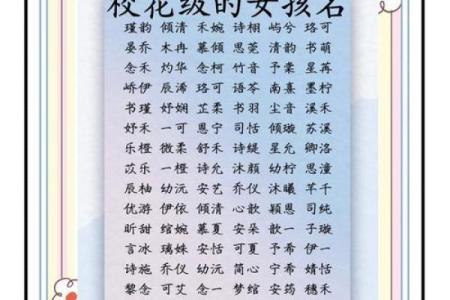 校花级的女孩名
瑾韵 倾清 禾婉 诗相 屿兮 珞可
晏乔 木冉 慕倾 思莞 清韵 书萌
念禾 灼华 念柯 竹音 予棠 星苒
峤伊 辰浠 珞可 语苓 南熹 墨柠
书瑾 妤娴 芷柔 书羽 尘音 溪禾
妤禾 一可 恩宁 司恬 倾璇 苏溪
乐橙 微柔 舒禾 诗缇 星允 卿洛
苡乐 一橙 诗允 沐颜 幼柠 思潼
辰柚 幼沅 安艺 乔仪 沐曦 芊千
优游 伊依 倾清 心歆 颖恩 司纯
昕甜 绾婉 慕夏 安朵 歆一 子璇
言冰 璃姝 安恬 可夏 予希 伊一
诗施 乔仪 幼沅 简心 宁希 婧恬
黎念 可艾 念一 梦绾 安药 穗禾